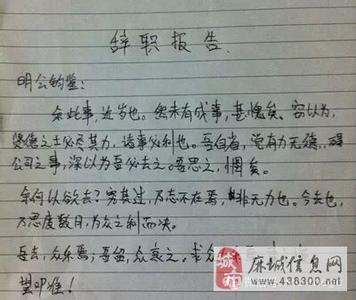 辞职报告
明公钧鉴：
余此事，近岁也。然未有成事，甚愧矣。窃以为，
贤德之士必尽其力，诸事必利也。吾自省，觉有力无殇，
公司之事，深以为吾必去之。吾思之，惆矣。
余何以欲去？究其过，乃志不在焉，非无力也。今去也，
乃思度数日，为众之利而决。
吾去，众乐焉；吾留，众哀之。求
望叩准！
城市
麻城信息网
www.436300.net